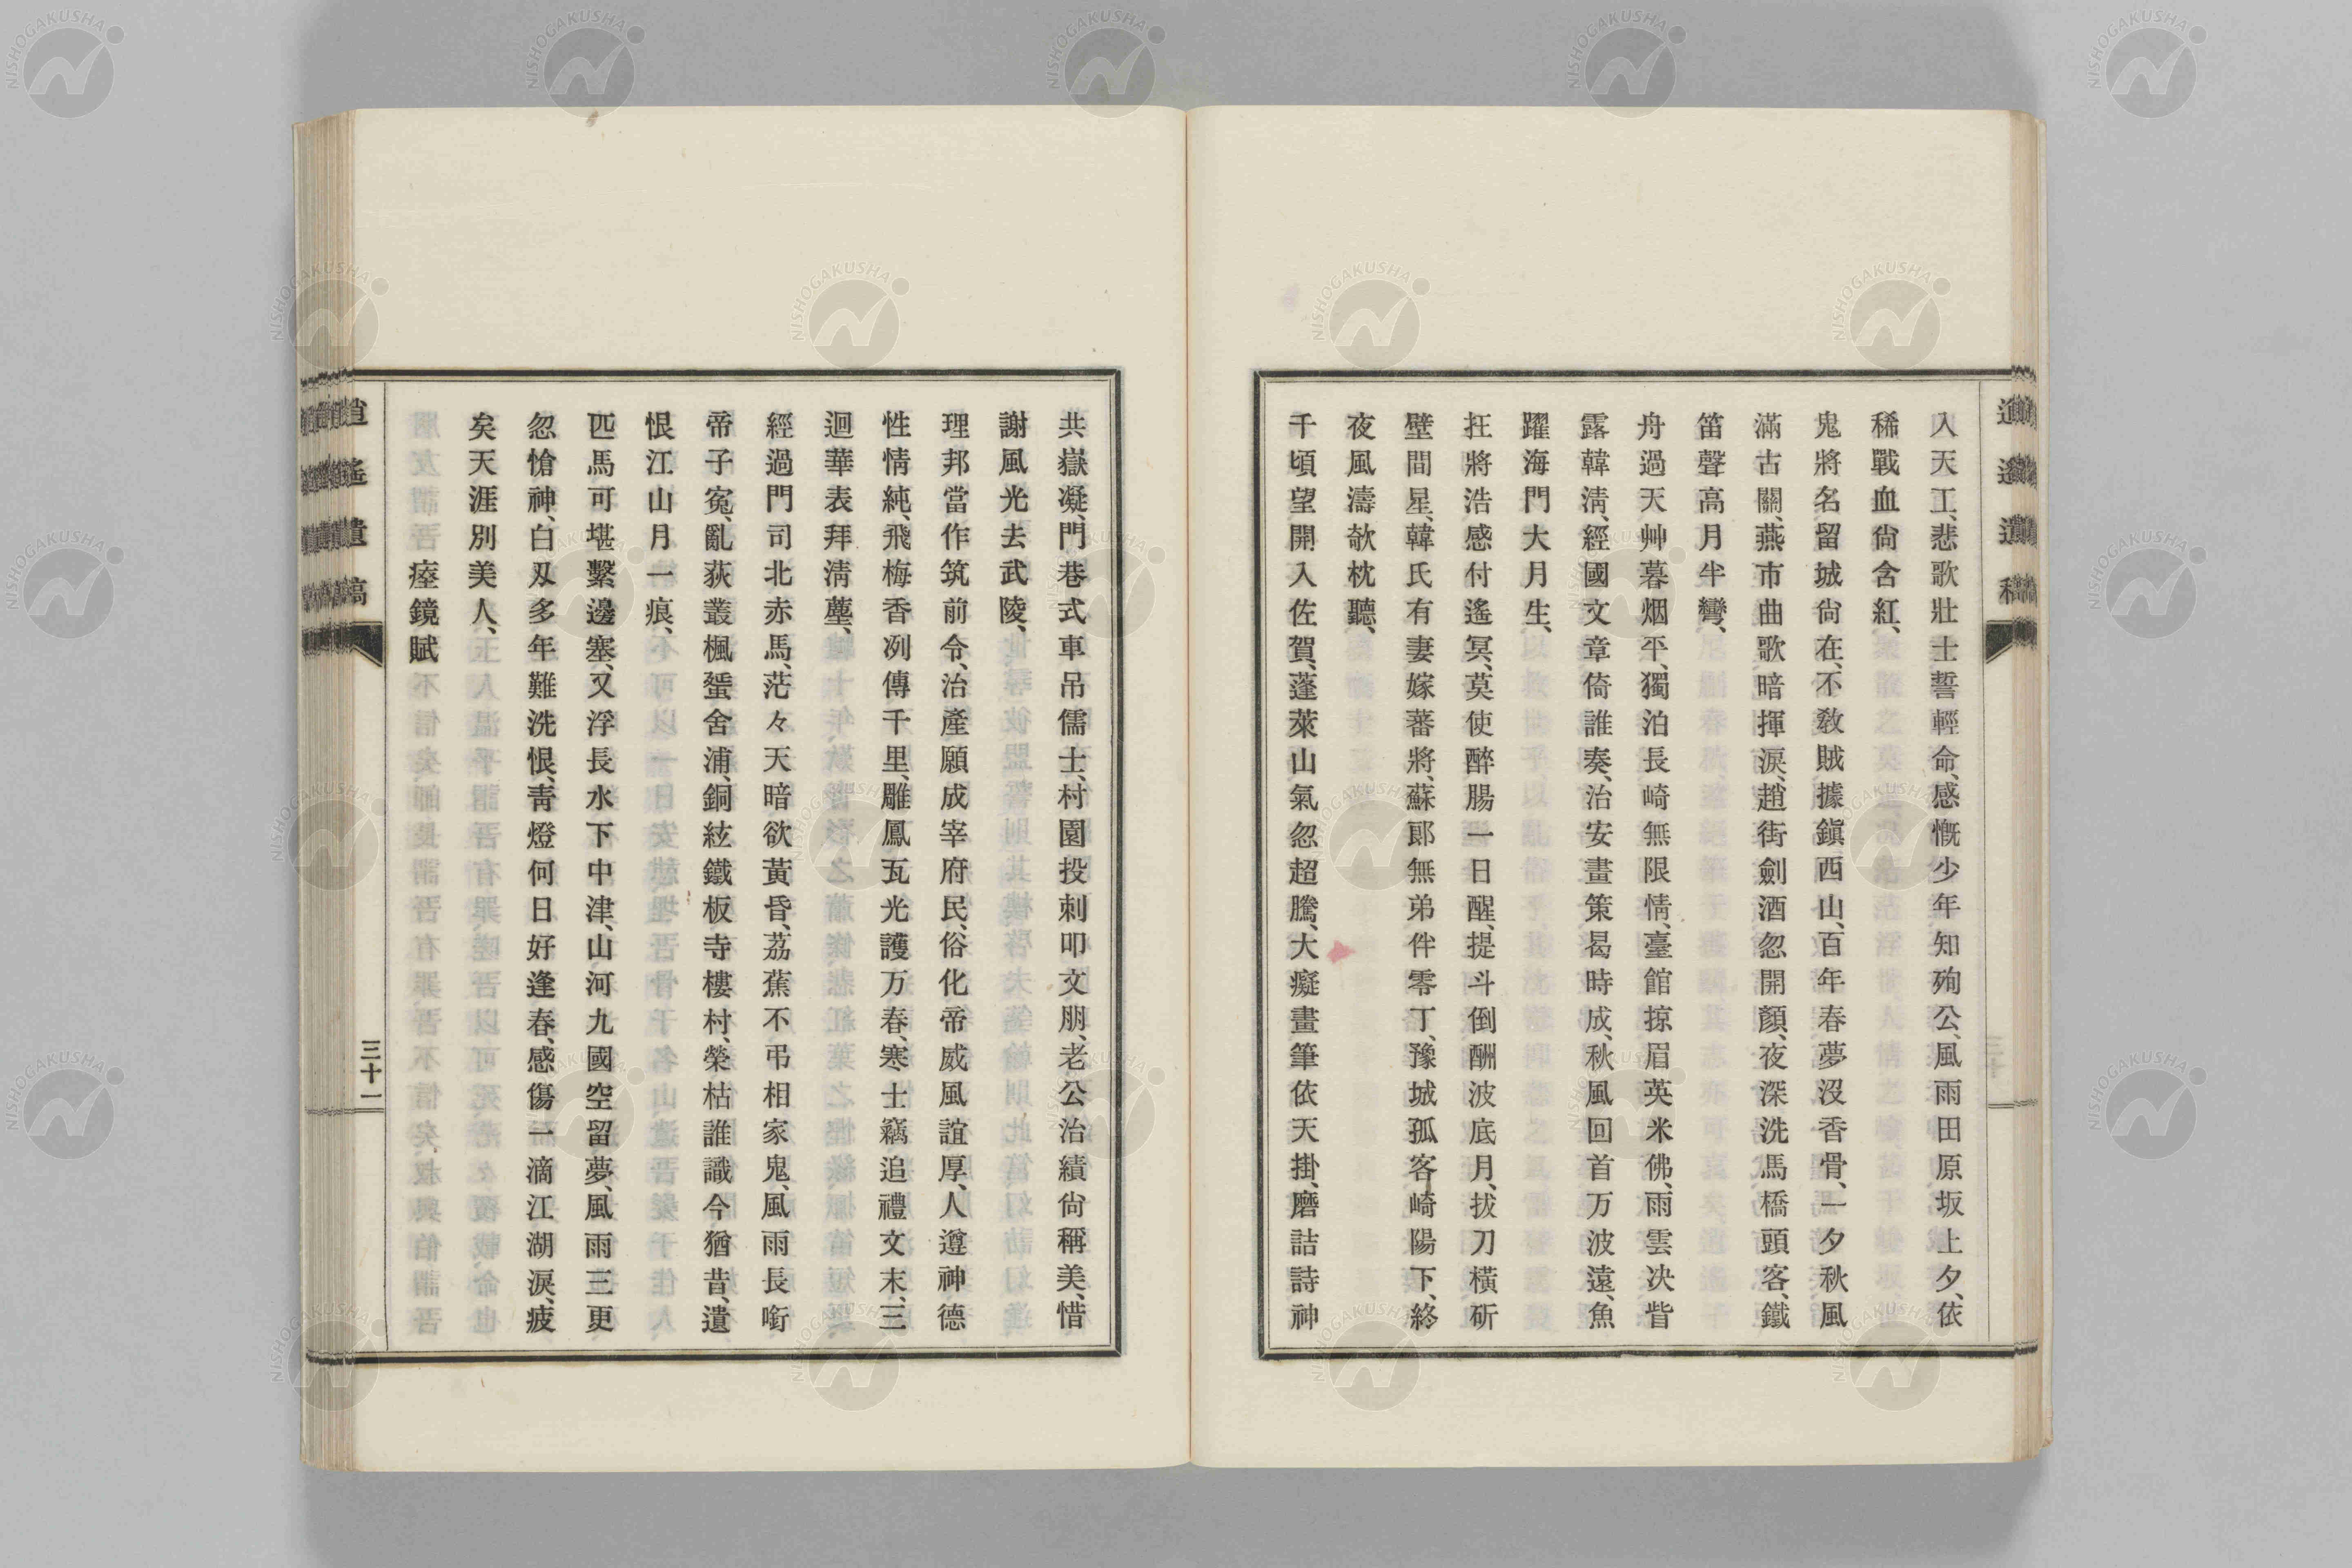 入天工、悲歌壯士誓輕命、感慨少年知殉公、風雨田原坂上夕、依
稀戰血尙含紅、
鬼將名留城尙在、不敎賊據鎭西山、百年春夢沒香骨、一夕秋風
滿古關、燕市曲歌暗揮淚、趙街劍酒忽開顏、夜深洗馬橋頭客、鐵
笛聲高月半彎、
舟過天艸暮烟平、獨泊長崎無限情、臺館掠眉英米佛、雨雲决眥
露韓淸、經國文章倚誰奏、治安畫策曷時成、秋風回首万波遠、魚
躍海門大月生、
抂將浩感付遙冥、莫使醉腸一日醒、提斗倒酬波底月、拔刀橫斫
壁間星、韓氏有妻嫁蕃將、蘇郞無弟伴零丁、豫城孤客崎陽下、終
夜風濤欹枕聽、
千頃望開入佐賀、蓬萊山氣忽超騰、大癡畫筆依天掛、磨詰詩神
共嶽凝、門巷式車吊儒士、村園投刺叩文朋、老公治績尙稱美、惜
謝風光去武陵、
理邦當作筑前令、治產願成宰府民、俗化帝威風誼厚、人遵神德
性情純、飛梅香冽傳千里、雕鳳瓦光護万春、寒士竊追禮文末、三
迴華表拜淸塵、
經過門司北赤馬、茫々天暗欲黃昏、荔蕉不弔相家鬼、風雨長銜
帝子寃、亂荻叢楓蜑舍浦、銅絃鐵板寺樓村、榮枯誰識今猶昔、遺
恨江山月一痕、
匹馬可堪繫邊塞、又浮長水下中津、山河九國空留夢、風雨三更
忽愴神、白刄多年難洗恨、靑燈何日好逢春、感傷一滴江湖淚、疲
矣天涯別美人、
瘞鏡賦
逍遙遺稿
三十一